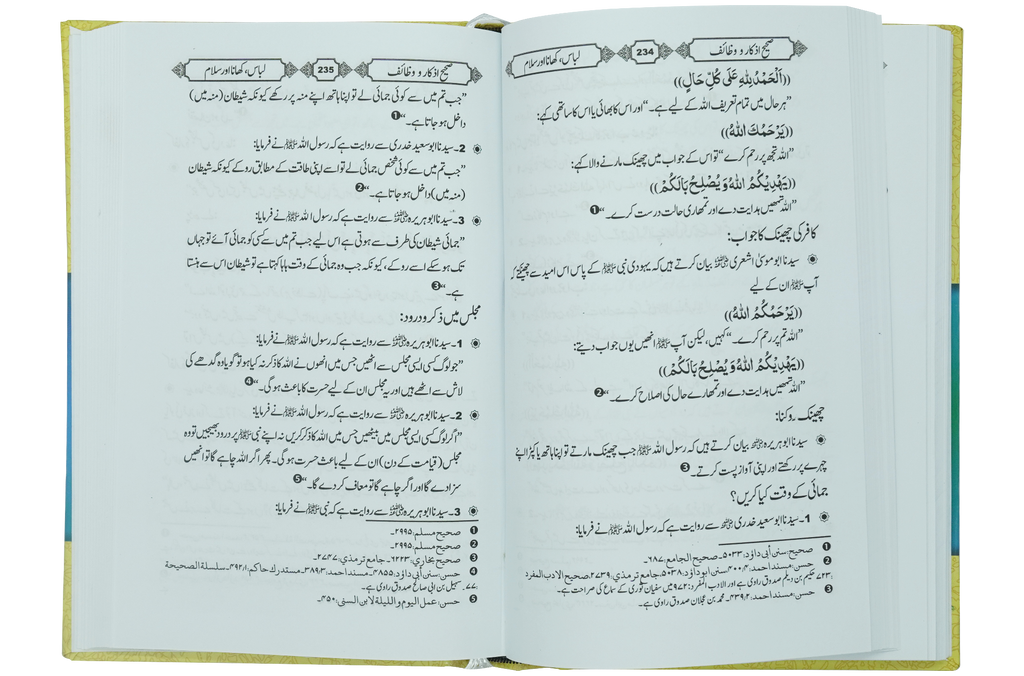 صحیح اذکار و وظائف
234
لباس، کھانا اور سلام
((اَلْحَمْدُ لِلّٰهِ عَلٰى كُلِّ حَالٍ))
”ہر حال میں تمام تعریف اللہ کے لیے ہے۔“ اور اس کا بھائی یا اس کا ساتھی کہے:
((يَرْحَمُكَ اللّٰهُ))
”اللہ تجھ پر رحم کرے“ تو اس کے جواب میں چھینک مارنے والا کہے:
((يَهْدِيْكُمُ اللّٰهُ وَ يُصْلِحُ بَالَكُمْ))
”اللہ تمھیں ہدایت دے اور تمھاری حالت درست کرے۔“ ❶
کافر کی چھینک کا جواب:
سیدنا ابو موسیٰ اشعری رضی اللہ عنہ بیان کرتے ہیں کہ یہودی نبی ﷺ کے پاس اس امید سے چھینکتے کہ
آپ ﷺ ان کے لیے
((يَرْحَمُكُمُ اللّٰهُ))
”اللہ تم پر رحم کرے۔“ کہیں، لیکن آپ ﷺ انھیں یوں جواب دیتے:
((يَهْدِيْكُمُ اللّٰهُ وَ يُصْلِحُ بَالَكُمْ))
”اللہ تمھیں ہدایت دے اور تمھارے حال کی اصلاح کرے۔“ ❷
چھینک روکنا:
سیدنا ابو ہریرہ رضی اللہ عنہ بیان کرتے ہیں کہ رسول اللہ ﷺ جب چھینک مارتے تو اپنا ہاتھ یا کپڑا اپنے
چہرے پر رکھتے اور اپنی آواز پست کرتے۔ ❸
جمائی کے وقت کیا کریں؟
1- سیدنا ابو سعید خدری رضی اللہ عنہ سے روایت ہے کہ رسول اللہ ﷺ نے فرمایا:
❶ صحیح: سنن أبی داؤد: ۵۰۳۳۔ صحیح الجامع: ۶۸۷۔
❷ حسن: مسند احمد: ۴/۴۰۰، سنن ابو داؤد: ۵۰۳۸، جامع ترمذی: ۲۷۳۹، صحیح الادب المفرد
۷۲۳: حکیم بن دیلم صدوق راوی ہے اور الادب المفرد: ۹۷۲ میں سفیان ثوری کے سماع کی صراحت ہے۔
❸ حسن: مسند احمد: ۲/۴۳۹۔ محمد بن عجلان صدوق راوی ہے۔
صحیح اذکار و وظائف
235
لباس، کھانا اور سلام
”جب تم میں سے کوئی جمائی لے تو اپنا ہاتھ اپنے منہ پر رکھے کیونکہ شیطان (منہ میں)
داخل ہو جاتا ہے۔“ ❶
2- سیدنا ابو سعید خدری رضی اللہ عنہ سے روایت ہے کہ رسول اللہ ﷺ نے فرمایا:
”جب تم میں سے کوئی شخص جمائی لے تو اسے اپنی طاقت کے مطابق روکے کیونکہ شیطان
(منہ میں) داخل ہو جاتا ہے۔“ ❷
3- سیدنا ابو ہریرہ رضی اللہ عنہ سے روایت ہے کہ رسول اللہ ﷺ نے فرمایا:
”جمائی شیطان کی طرف سے ہوتی ہے اس لیے جب تم میں سے کسی کو جمائی آئے تو جہاں
تک ہو سکے اسے روکے، کیونکہ جب وہ جمائی کے وقت ہاہا کہتا ہے تو شیطان اس سے ہنستا
ہے۔“ ❸
مجلس میں ذکر و درود:
1- سیدنا ابو ہریرہ رضی اللہ عنہ سے روایت ہے کہ رسول اللہ ﷺ نے فرمایا:
”جو لوگ کسی ایسی مجلس سے اٹھیں جس میں انھوں نے اللہ کا ذکر نہ کیا ہو تو گویا وہ گدھے کی
لاش سے اٹھے ہیں اور یہ مجلس ان کے لیے حسرت کا باعث ہو گی۔“ ❹
2- سیدنا ابو ہریرہ رضی اللہ عنہ سے روایت ہے کہ رسول اللہ ﷺ نے فرمایا:
”اگر لوگ کسی ایسی مجلس میں بیٹھیں جس میں اللہ کا ذکر کریں نہ اپنے نبی ﷺ پر درود بھیجیں تو وہ
مجلس (قیامت کے دن) ان کے لیے باعث حسرت ہو گی۔ پھر اگر اللہ چاہے گا تو انھیں
سزا دے گا اور اگر چاہے گا تو معاف کر دے گا۔“ ❺
3- سیدنا ابو ہریرہ رضی اللہ عنہ سے روایت ہے کہ نبی ﷺ نے فرمایا:
❶ صحیح مسلم: ۲۹۹۵۔
❷ صحیح مسلم: ۲۹۹۵۔
❸ صحیح بخاری: ۶۲۲۳۔ جامع ترمذی: ۲۷۴۷۔
❹ حسن: سنن أبی داؤد: ۴۸۵۵۔ مسند احمد: ۲/۳۸۹۔ مستدرک حاکم: ۱/۴۹۲۔ سلسلة الصحیحة
۷۷: سہیل بن ابی صالح صدوق راوی ہے۔
❺ حسن: عمل الیوم واللیلة لابن السنی: ۴۵۰۔